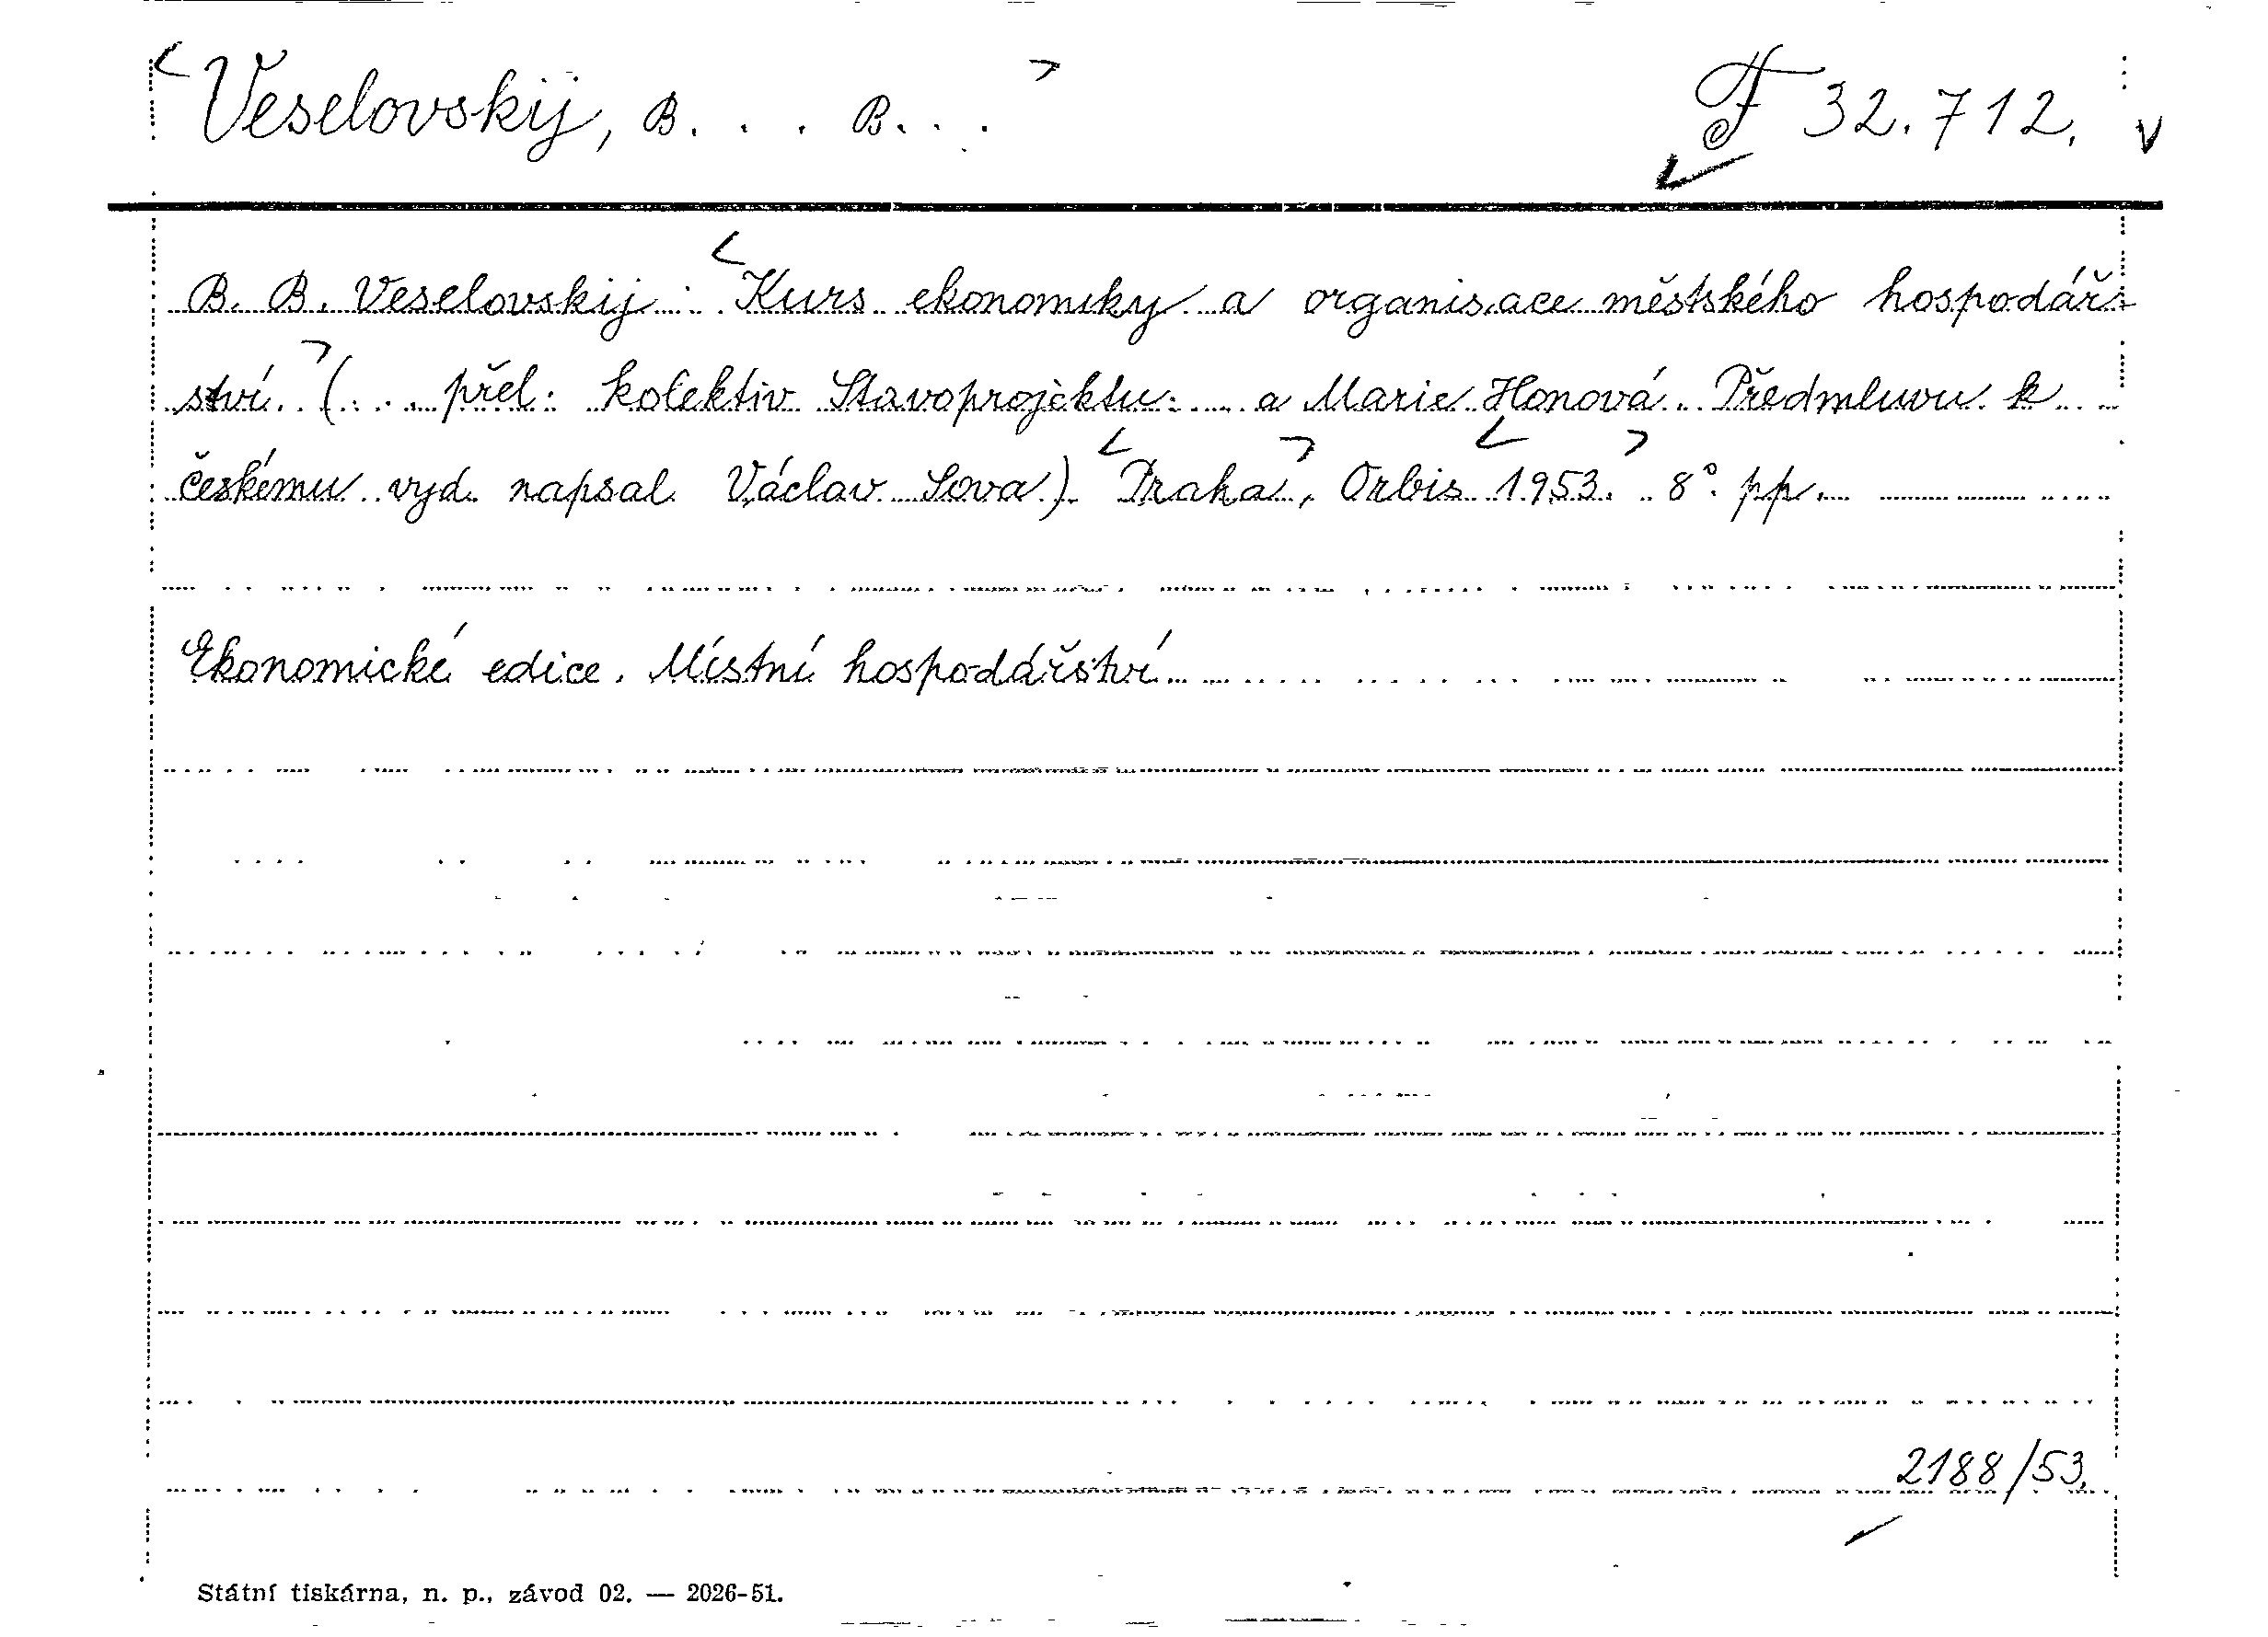 Veselovskij, B... B...
F 32.712.
B. B. Veselovskij: Kurs ekonomiky a organisace městského hospodář-
ství. (... přel. kolektiv Stavoprojektu... a Marie Honová. Předmluvu k
českému vyd. napsal Václav Sova). Praha, Orbis 1953. 8°. pp.
Ekonomické edice. Místní hospodářství
2188/53.
Státní tiskárna, n. p., závod 02. — 2026-51.